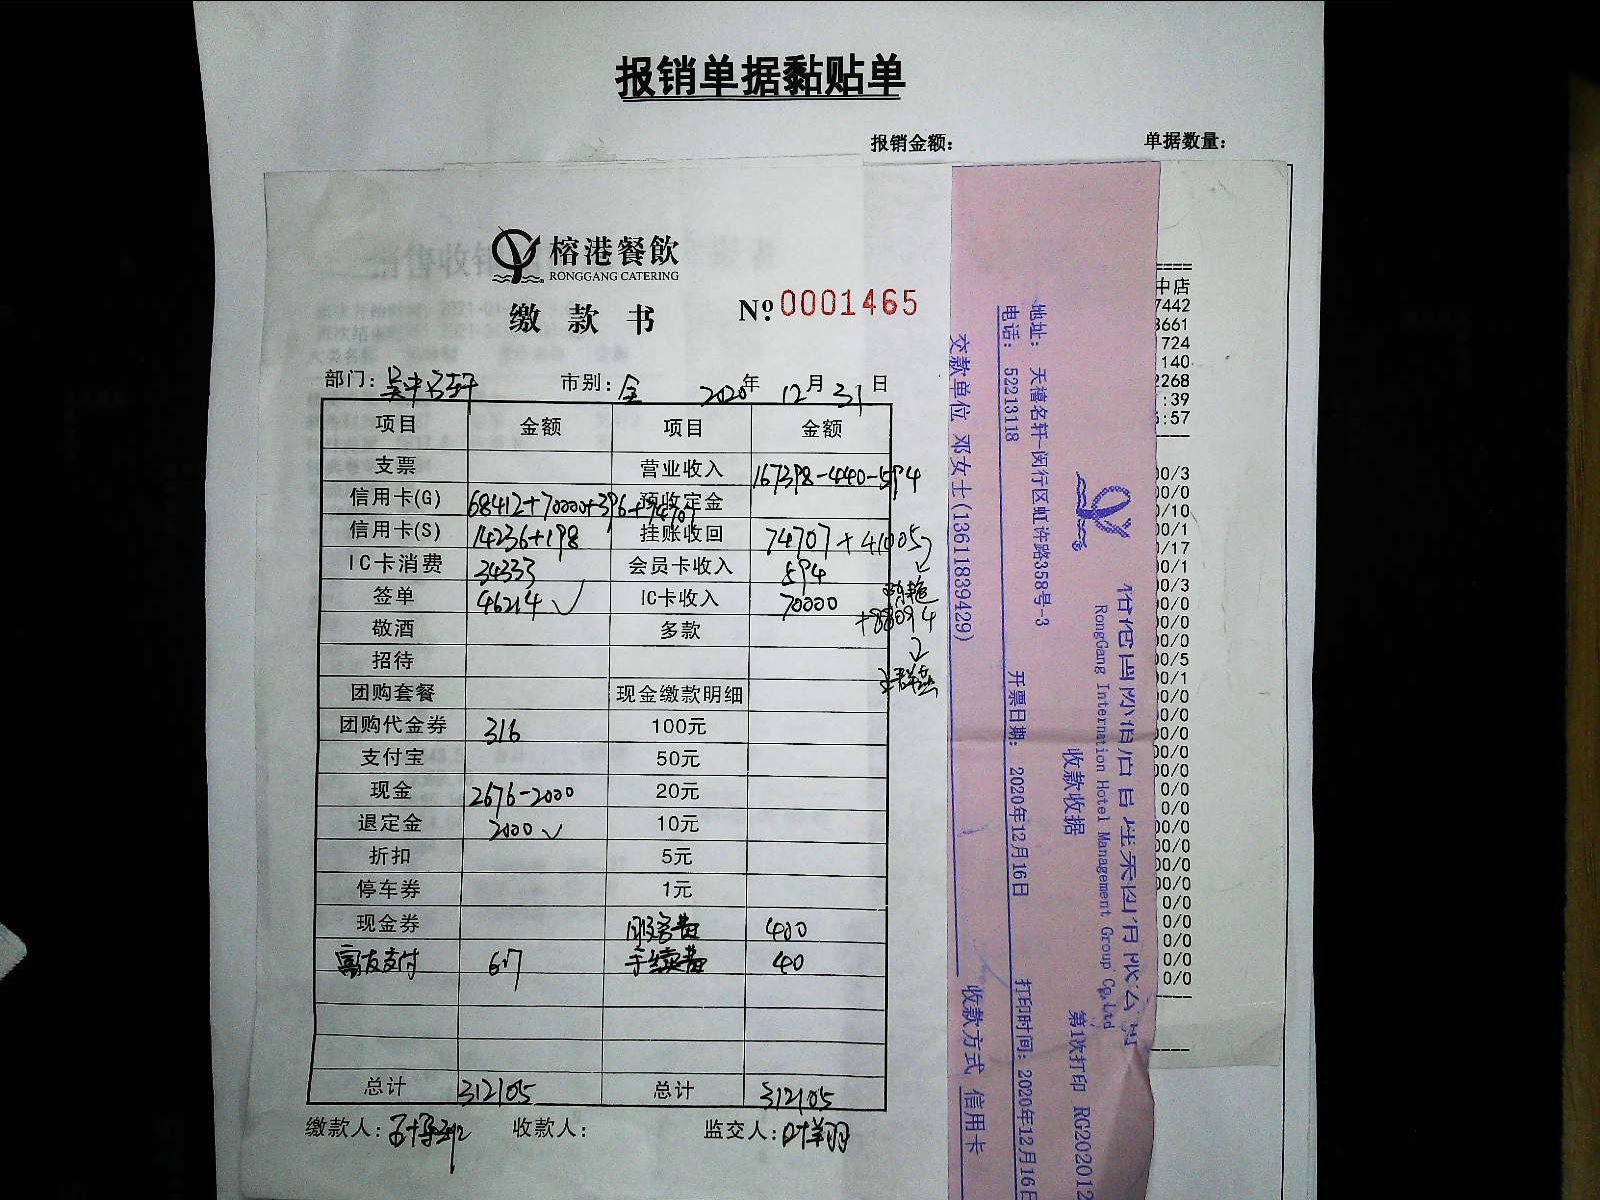 报销单据黏贴单
报销金额：
单据数量：
榕港餐飲
RONGGANG CATERING
缴款书
№ 0001465
部门：吴中名轩 市别：全 2020年 12月 31日
项目 金额 项目 金额
支票 营业收入 167398-440-594
信用卡(G) 68412+70000+396+74707 预收定金
信用卡(S) 14236+198 挂账收回 74707+41005
IC卡消费 34333 会员卡收入 594
签单 46214 ✓ IC卡收入 70000
敬酒 多款
招待
团购套餐 现金缴款明细
团购代金券 316 100元
支付宝 50元
现金 2676-2000 20元
退定金 2000 ✓ 10元
折扣 5元
停车券 1元
现金券 服务费 400
富友支付 617 手续费 40
总计 312105 总计 312105
缴款人： 收款人： 监交人：叶翔
RongGang Internation Hotel Management Group Co,Ltd
收款收据 第1次打印 RG202012
地址： 天禧名轩-闵行区虹许路358号-3
电话： 52213118 开票日期： 2020年12月16日 打印时间：2020年12月16日
交款单位 邓女士(13611839429) 收款方式 信用卡
中店
7442
3661
1724
140
2268
:39
:57
00/3
00/0
/10
00/1
/17
00/1
00/3
00/0
00/0
00/0
00/5
00/1
00/0
00/0
00/0
00/0
0/0
00/0
00/0
00/0
0/0
0/0
0/0
0/0
0/0